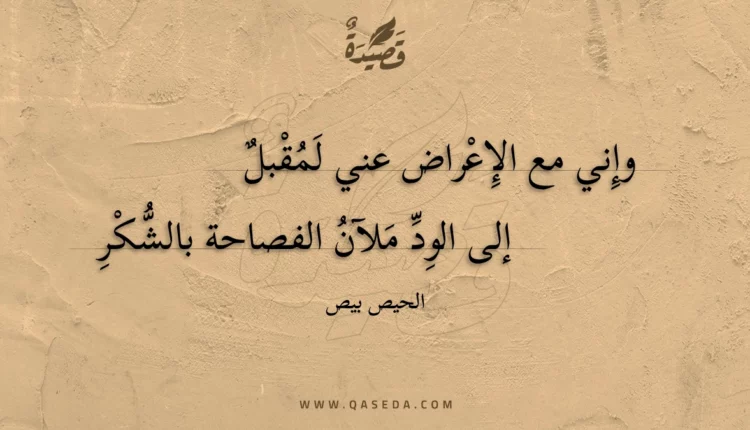 قَصِيْدَةٌ
وإِني مع الإِعْراض عني لَمُقْبلٌ
إلى الوِدِّ مَلآنُ الفصاحة بالشُّكْرِ
الحيص بيص
WWW.QASEDA.COM